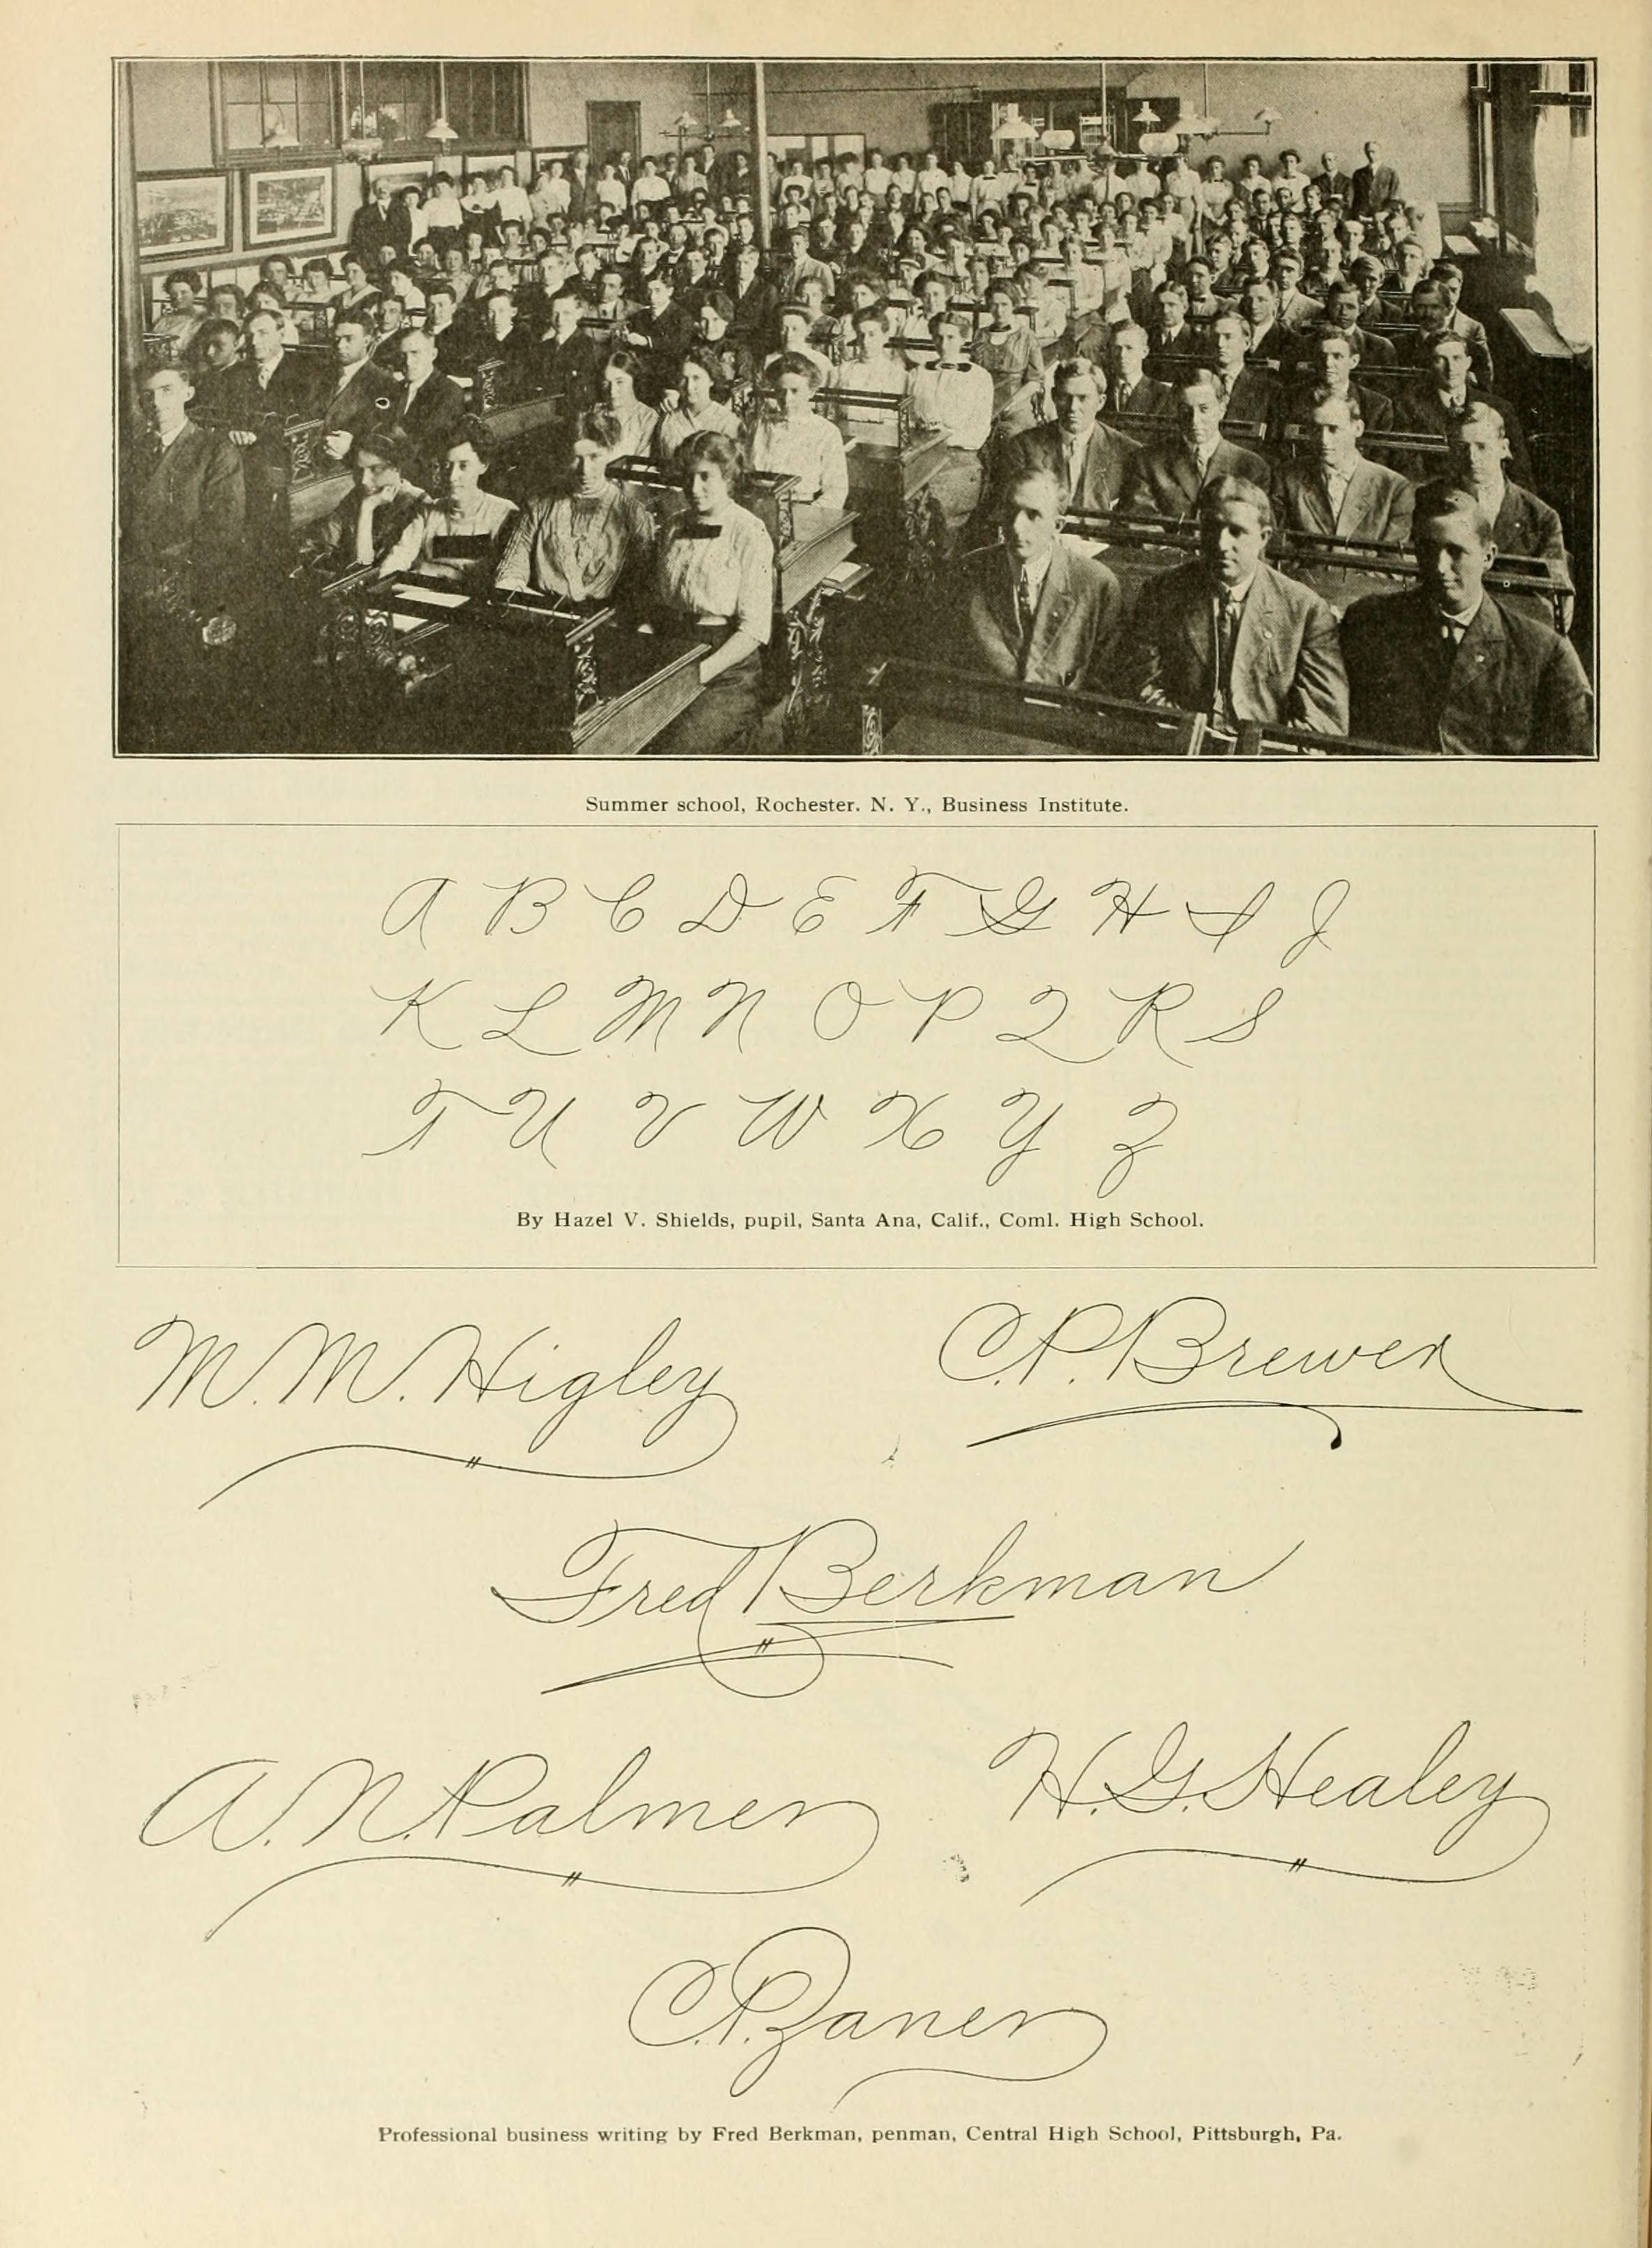 Summer school, Rochester. N. Y., Business Institute.
A B C D E F G H I J
K L M N O P Q R S
T U V W X Y Z
By Hazel V. Shields, pupil, Santa Ana, Calif., Coml. High School.
M. M. Higley
C. P. Brewer
Fred Berkman
A. N. Palmer
H. G. Healey
C. P. Zaner
Professional business writing by Fred Berkman, penman, Central High School, Pittsburgh, Pa.